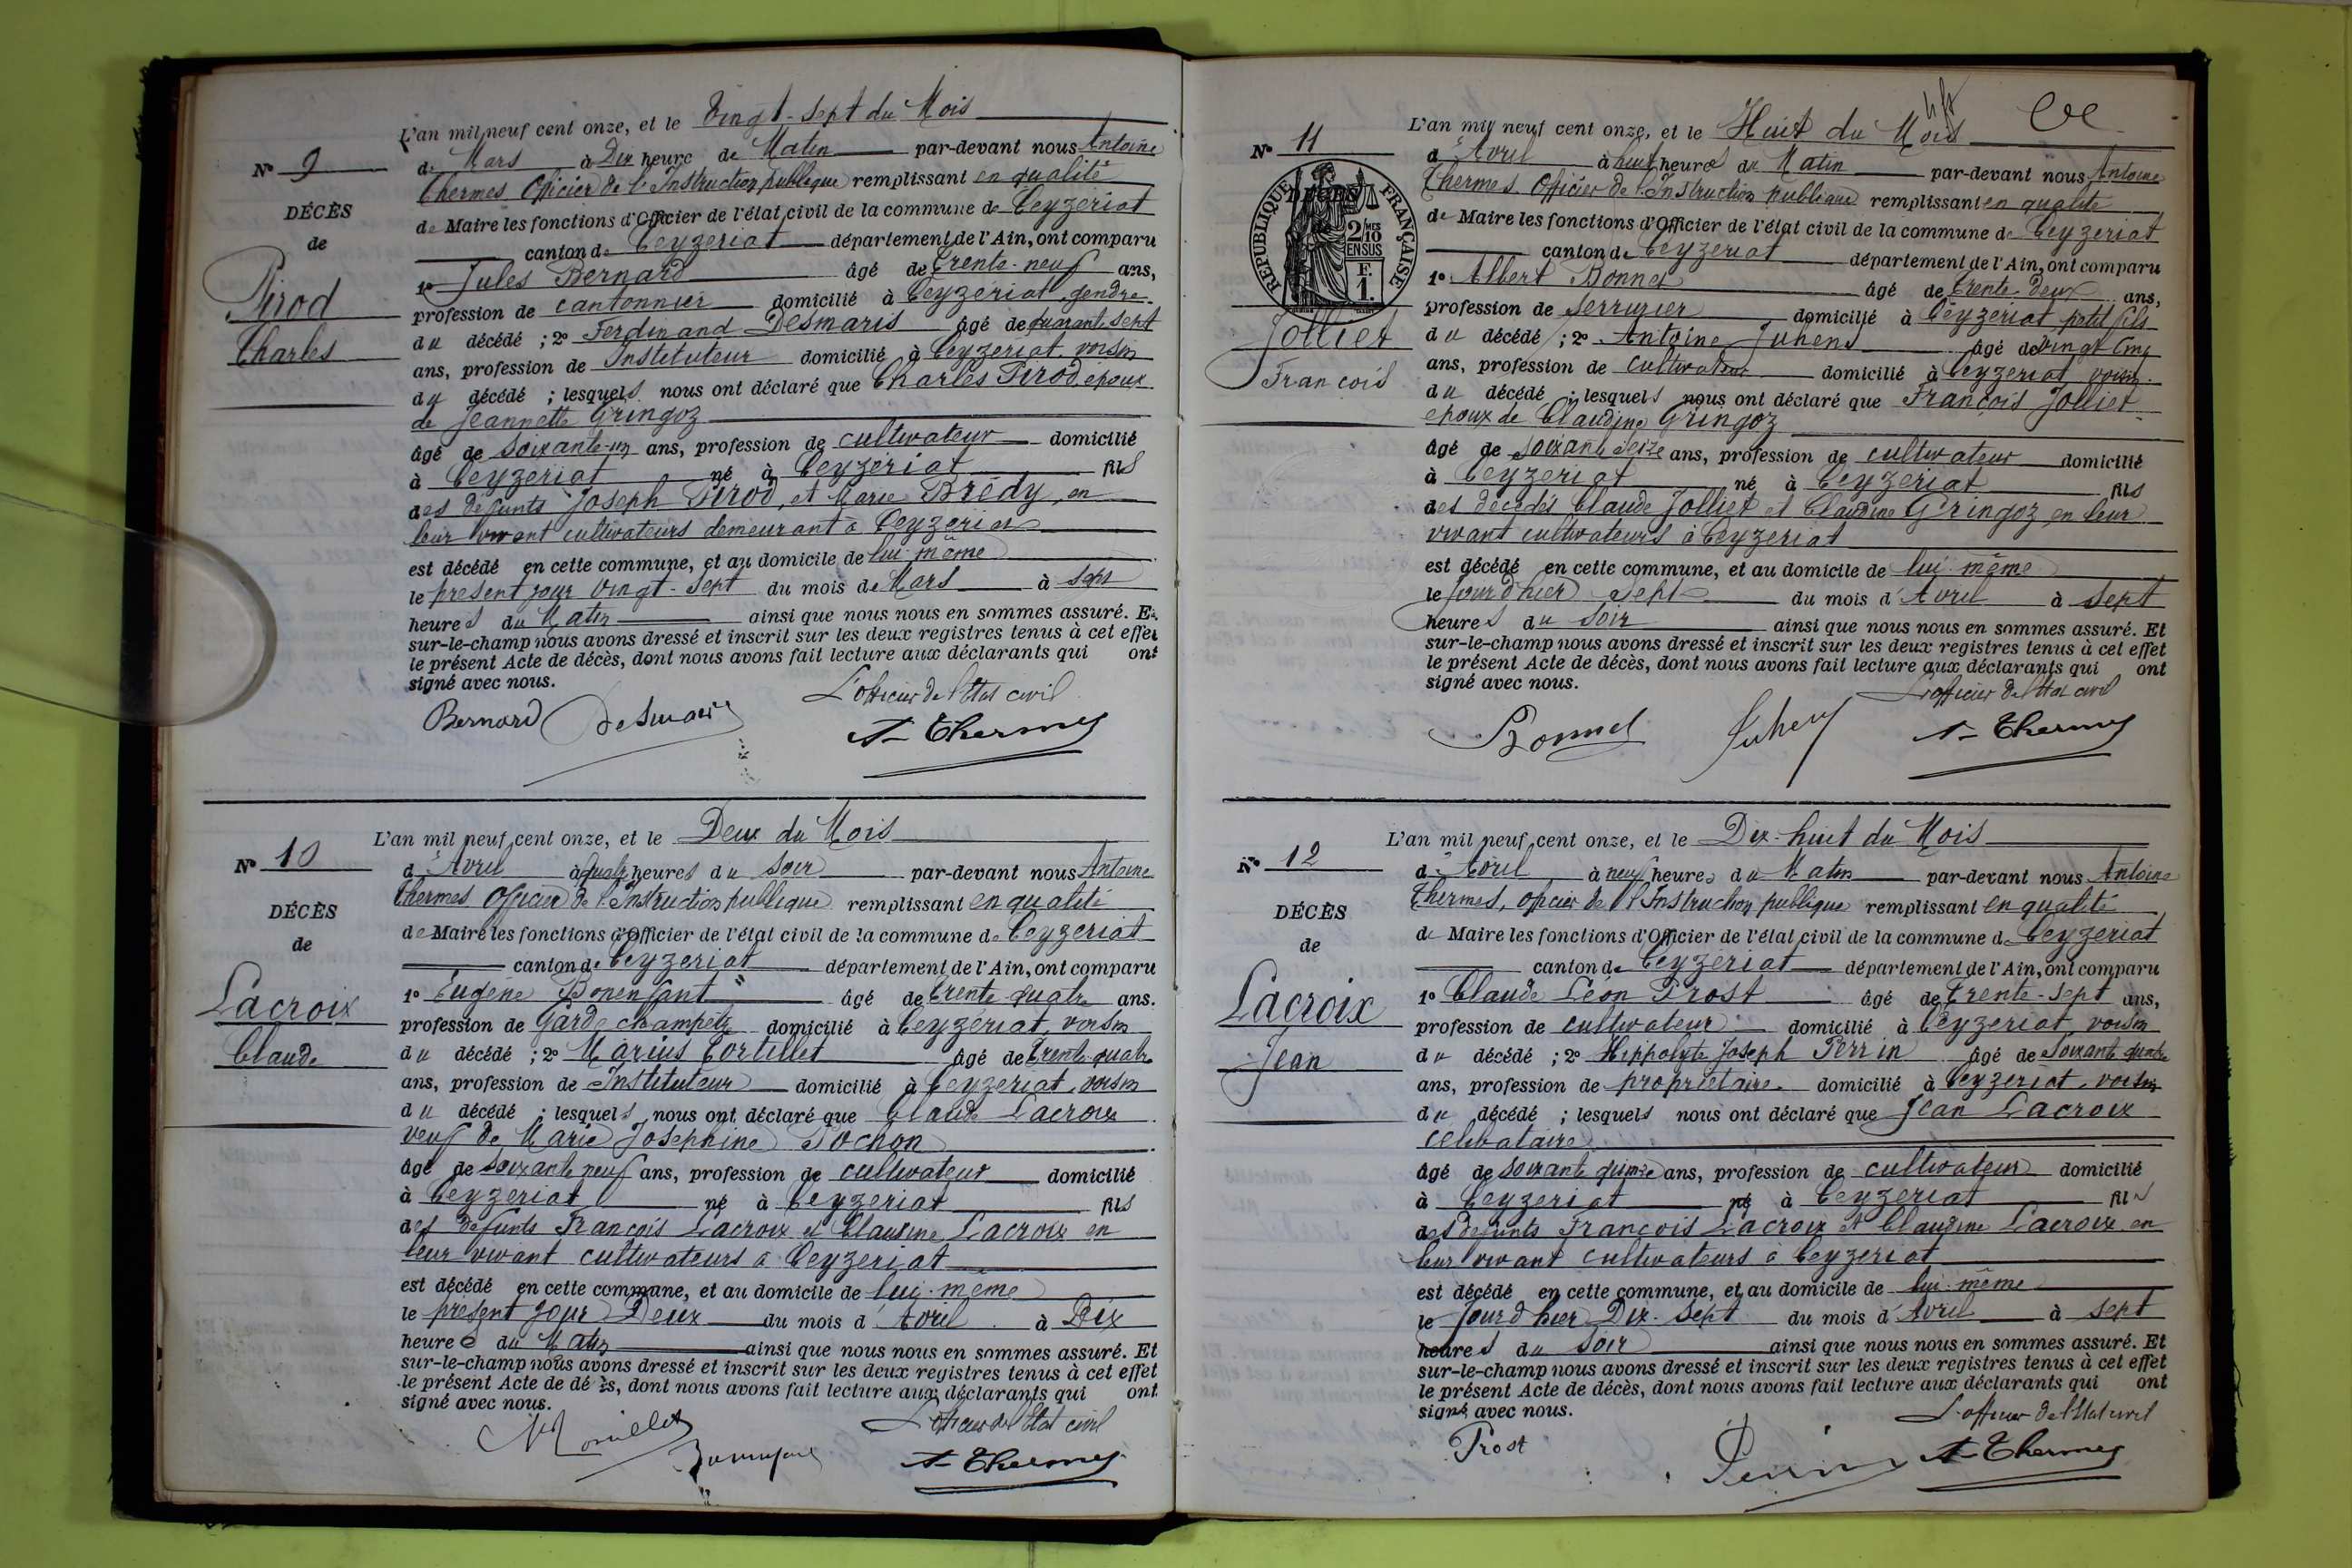 N° 9
DÉCÈS
de
Pirod
Charles
L'an mil neuf cent onze, et le Vingt-sept du Mois
de Mars à Dix heure de Matin par-devant nous Antoine
Thermes Officier de l'Instruction publique remplissant en qualité
de Maire les fonctions d'Officier de l'état civil de la commune de Ceyzeriat
canton de Ceyzeriat département de l'Ain, ont comparu
1° Jules Bernard âgé de trente-neuf ans,
profession de cantonnier domicilié à Ceyzeriat, gendre
du décédé ; 2° Ferdinand Desmaris âgé de quarante sept
ans, profession de Instituteur domicilié à Ceyzeriat, voisin
du décédé ; lesquels nous ont déclaré que Charles Pirod, epoux
de Jeannette Gringoz
âgé de soixante-un ans, profession de cultivateur domicilié
à Ceyzeriat né à Ceyzériat fils
des défunts Joseph Pirod, et Marie Brédy, en
leur vivant cultivateurs demeurant à Ceyzeriat
est décédé en cette commune, et au domicile de lui-même
le présent jour vingt-sept du mois de Mars à sept
heures du Matin ainsi que nous nous en sommes assuré. Et
sur-le-champ nous avons dressé et inscrit sur les deux registres tenus à cet effet
le présent Acte de décès, dont nous avons fait lecture aux déclarants qui ont
signé avec nous.
L'officier de l'Etat civil
Bernard Desmaris A. Thermes
N° 10
DÉCÈS
de
Lacroix
Claude
L'an mil neuf cent onze, et le Deux du Mois
d'Avril à quatre heures du soir par-devant nous Antoine
Thermes Officier de l'Instruction publique remplissant en qualité
de Maire les fonctions d'Officier de l'état civil de la commune de Ceyzeriat
canton de Ceyzeriat département de l'Ain, ont comparu
1° Eugene Bonenfant âgé de trente-quatre ans.
profession de Garde champêtre domicilié à Ceyzériat, voisin
du décédé ; 2° Marius Cortillet âgé de trente-quatre
ans, profession de Instituteur domicilié à Ceyzeriat, voisin
du décédé ; lesquels nous ont déclaré que Claude Lacroix
veuf de Marie Josephine Pochon
âgé de soixante neuf ans, profession de cultivateur domicilié
à Ceyzeriat né à Ceyzeriat fils
des défunts François Lacroix et Claudine Lacroix en
leur vivant cultivateurs à Ceyzeriat
est décédé en cette commune, et au domicile de lui-même
le présent jour Deux du mois d'Avril à Dix
heures du Matin ainsi que nous nous en sommes assuré. Et
sur-le-champ nous avons dressé et inscrit sur les deux registres tenus à cet effet
le présent Acte de décès, dont nous avons fait lecture aux déclarants qui ont
signé avec nous.
L'officier de l'Etat civil
A. Thermes
N° 11
DÉCÈS
RÉPUBLIQUE FRANÇAISE
2/10 MES
EN SUS
F.
1.
Jolliet
François
L'an mil neuf cent onze, et le Huit du Mois
d'Avril à huit heures du Matin par-devant nous Antoine
Thermes Officier de l'Instruction publique remplissant en qualité
de Maire les fonctions d'Officier de l'état civil de la commune de Ceyzeriat
canton de Ceyzeriat département de l'Ain, ont comparu
1° Albert Bonnet âgé de trente-deux ans,
profession de serrurier domicilié à Ceyzeriat petit fils
du décédé ; 2° Antoine Juhens âgé de vingt cinq
ans, profession de cultivateur domicilié à Ceyzeriat, voisin
du décédé ; lesquels nous ont déclaré que François Jolliet
epoux de Claudine Gringoz
âgé de soixante seize ans, profession de cultivateur domicilié
à Ceyzeriat né à Ceyzeriat fils
des décédés Claude Jolliet et Claudine Gringoz en leur
vivant cultivateurs à Ceyzeriat
est décédé en cette commune, et au domicile de lui-même
le jour d'hier sept du mois d'Avril à sept
heures du soir ainsi que nous nous en sommes assuré. Et
sur-le-champ nous avons dressé et inscrit sur les deux registres tenus à cet effet
le présent Acte de décès, dont nous avons fait lecture aux déclarants qui ont
signé avec nous.
L'officier de l'Etat civil
Bonnet Juhens A. Thermes
N° 12
DÉCÈS
de
Lacroix
Jean
L'an mil neuf cent onze, et le Dix-huit du Mois
d'Avril à neuf heures du Matin par-devant nous Antoine
Thermes, officier de l'Instruction publique remplissant en qualité
de Maire les fonctions d'Officier de l'état civil de la commune de Ceyzeriat
canton de Ceyzeriat département de l'Ain, ont comparu
1° Claude Léon Prost âgé de trente-sept ans,
profession de cultivateur domicilié à Ceyzeriat, voisin
du décédé ; 2° Hippolyte Joseph Perrin âgé de soixante quatre
ans, profession de propriétaire domicilié à Ceyzeriat, voisin
du décédé ; lesquels nous ont déclaré que Jean Lacroix
celibataire
âgé de soixante quinze ans, profession de cultivateur domicilié
à Ceyzeriat né à Ceyzeriat fils
des défunts François Lacroix et Claudine Lacroix en
leur vivant cultivateurs à Ceyzeriat
est décédé en cette commune, et au domicile de lui-même
le jour d'hier Dix-sept du mois d'Avril à sept
heures du soir ainsi que nous nous en sommes assuré. Et
sur-le-champ nous avons dressé et inscrit sur les deux registres tenus à cet effet
le présent Acte de décès, dont nous avons fait lecture aux déclarants qui ont
signé avec nous.
L'officier de l'Etat civil
Prost Perrin A. Thermes